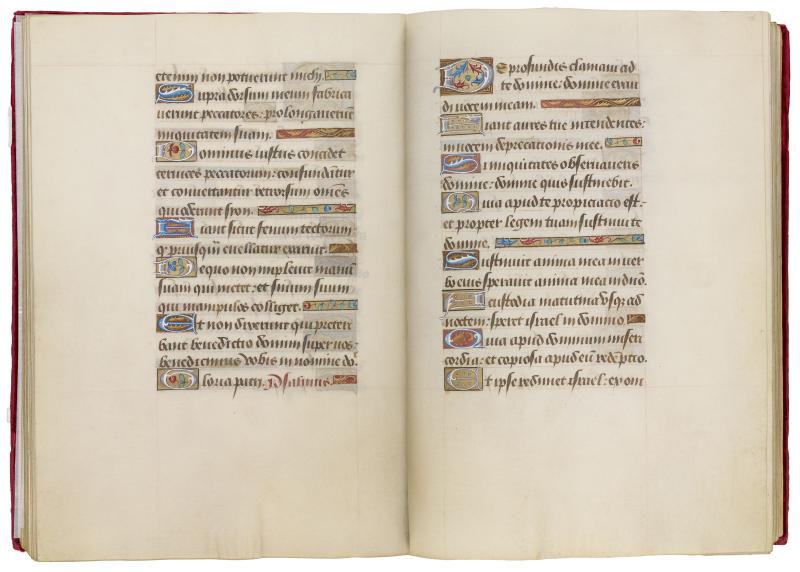 etenim non potuerunt michi.
Supra dorsum meum fabrica
uerunt peccatores: prolongauerūt
iniquitatem suam.
Dominus iustus concidet
ceruices peccatorum: confundātur
et conuertantur retrorsum omēs
qui oderunt syon.
Fiant sicut fenum tectorum
q̄ priusqͣ̄ euellatur exaruit.
De quo non impleuit manū
suam qui metet: et sinum suum
qui manipulos colliget.
Et non dixerunt qui preteri
bant benedictio domini super uos:
benedicimus vobis in nomine do.
Gloria patri. Psalmus.
De profundis clamaui ad
te domine: domine exau
di uocem meam.
Fiant aures tue intendentes:
in uocem deprecationis mee.
Si iniquitates obseruaueris
domine: domine quis sustinebit.
Quia apud te propiciacio est:
et propter legem tuam sustinui te
domine.
Sustinuit anima mea in uer
bo eius sperauit anima mea in dn̄o.
A custodia matutina vsqꝫ ad
noctem: speret israel in domino.
Quia apud dominum miseri
cordia: et copiosa apud eum redēptio.
Et ipse redimet israel: ex om